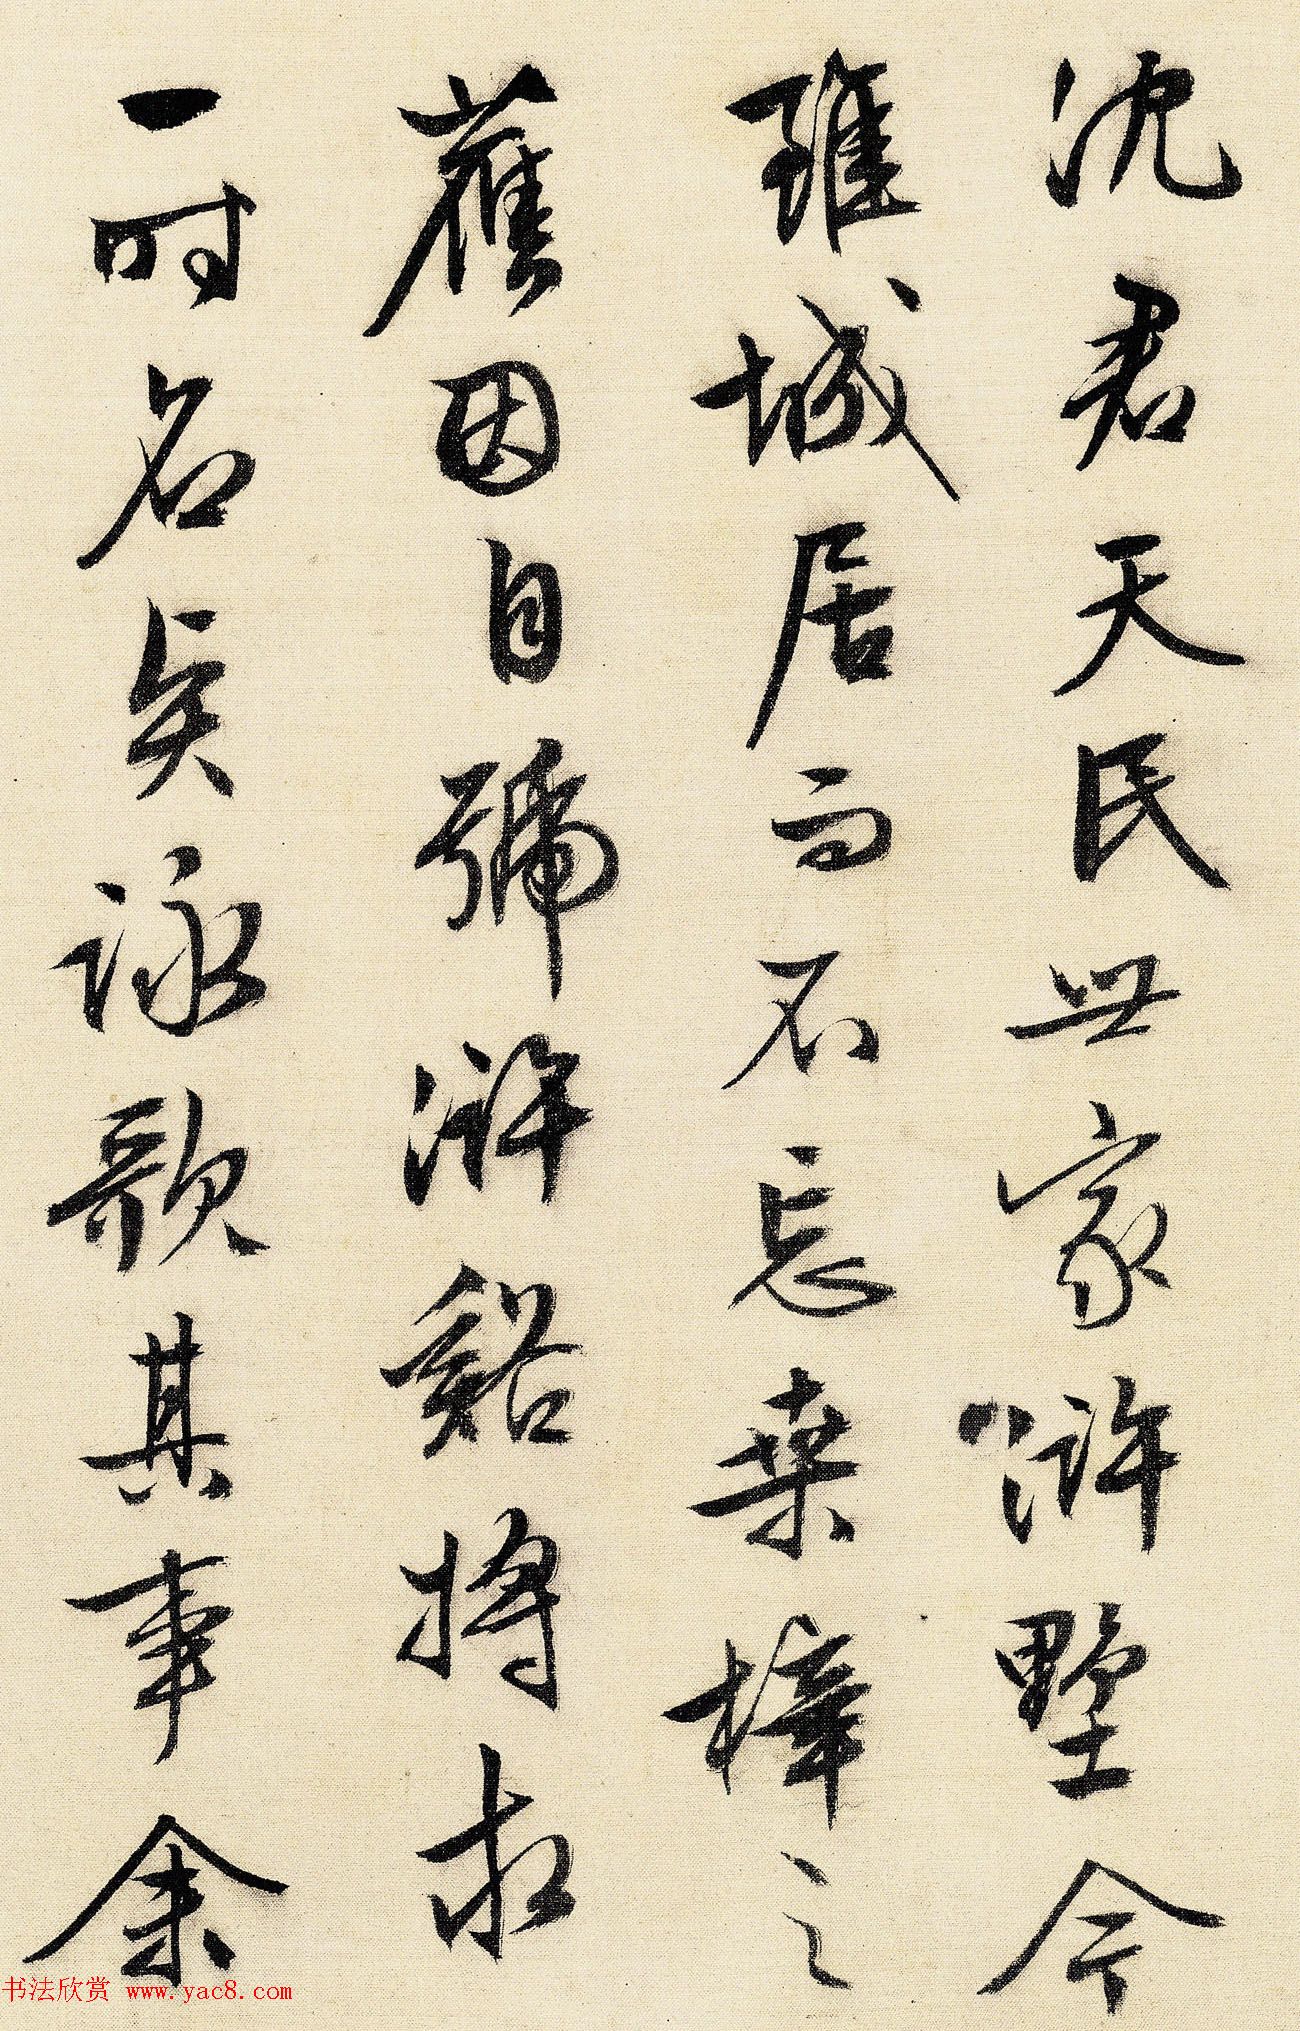 沈君天民世家滸墅今
雖城居而不忘桑梓之
舊因自號滸谿將求
一時名賢詠歌其事余
书法欣赏 www.yac8.com